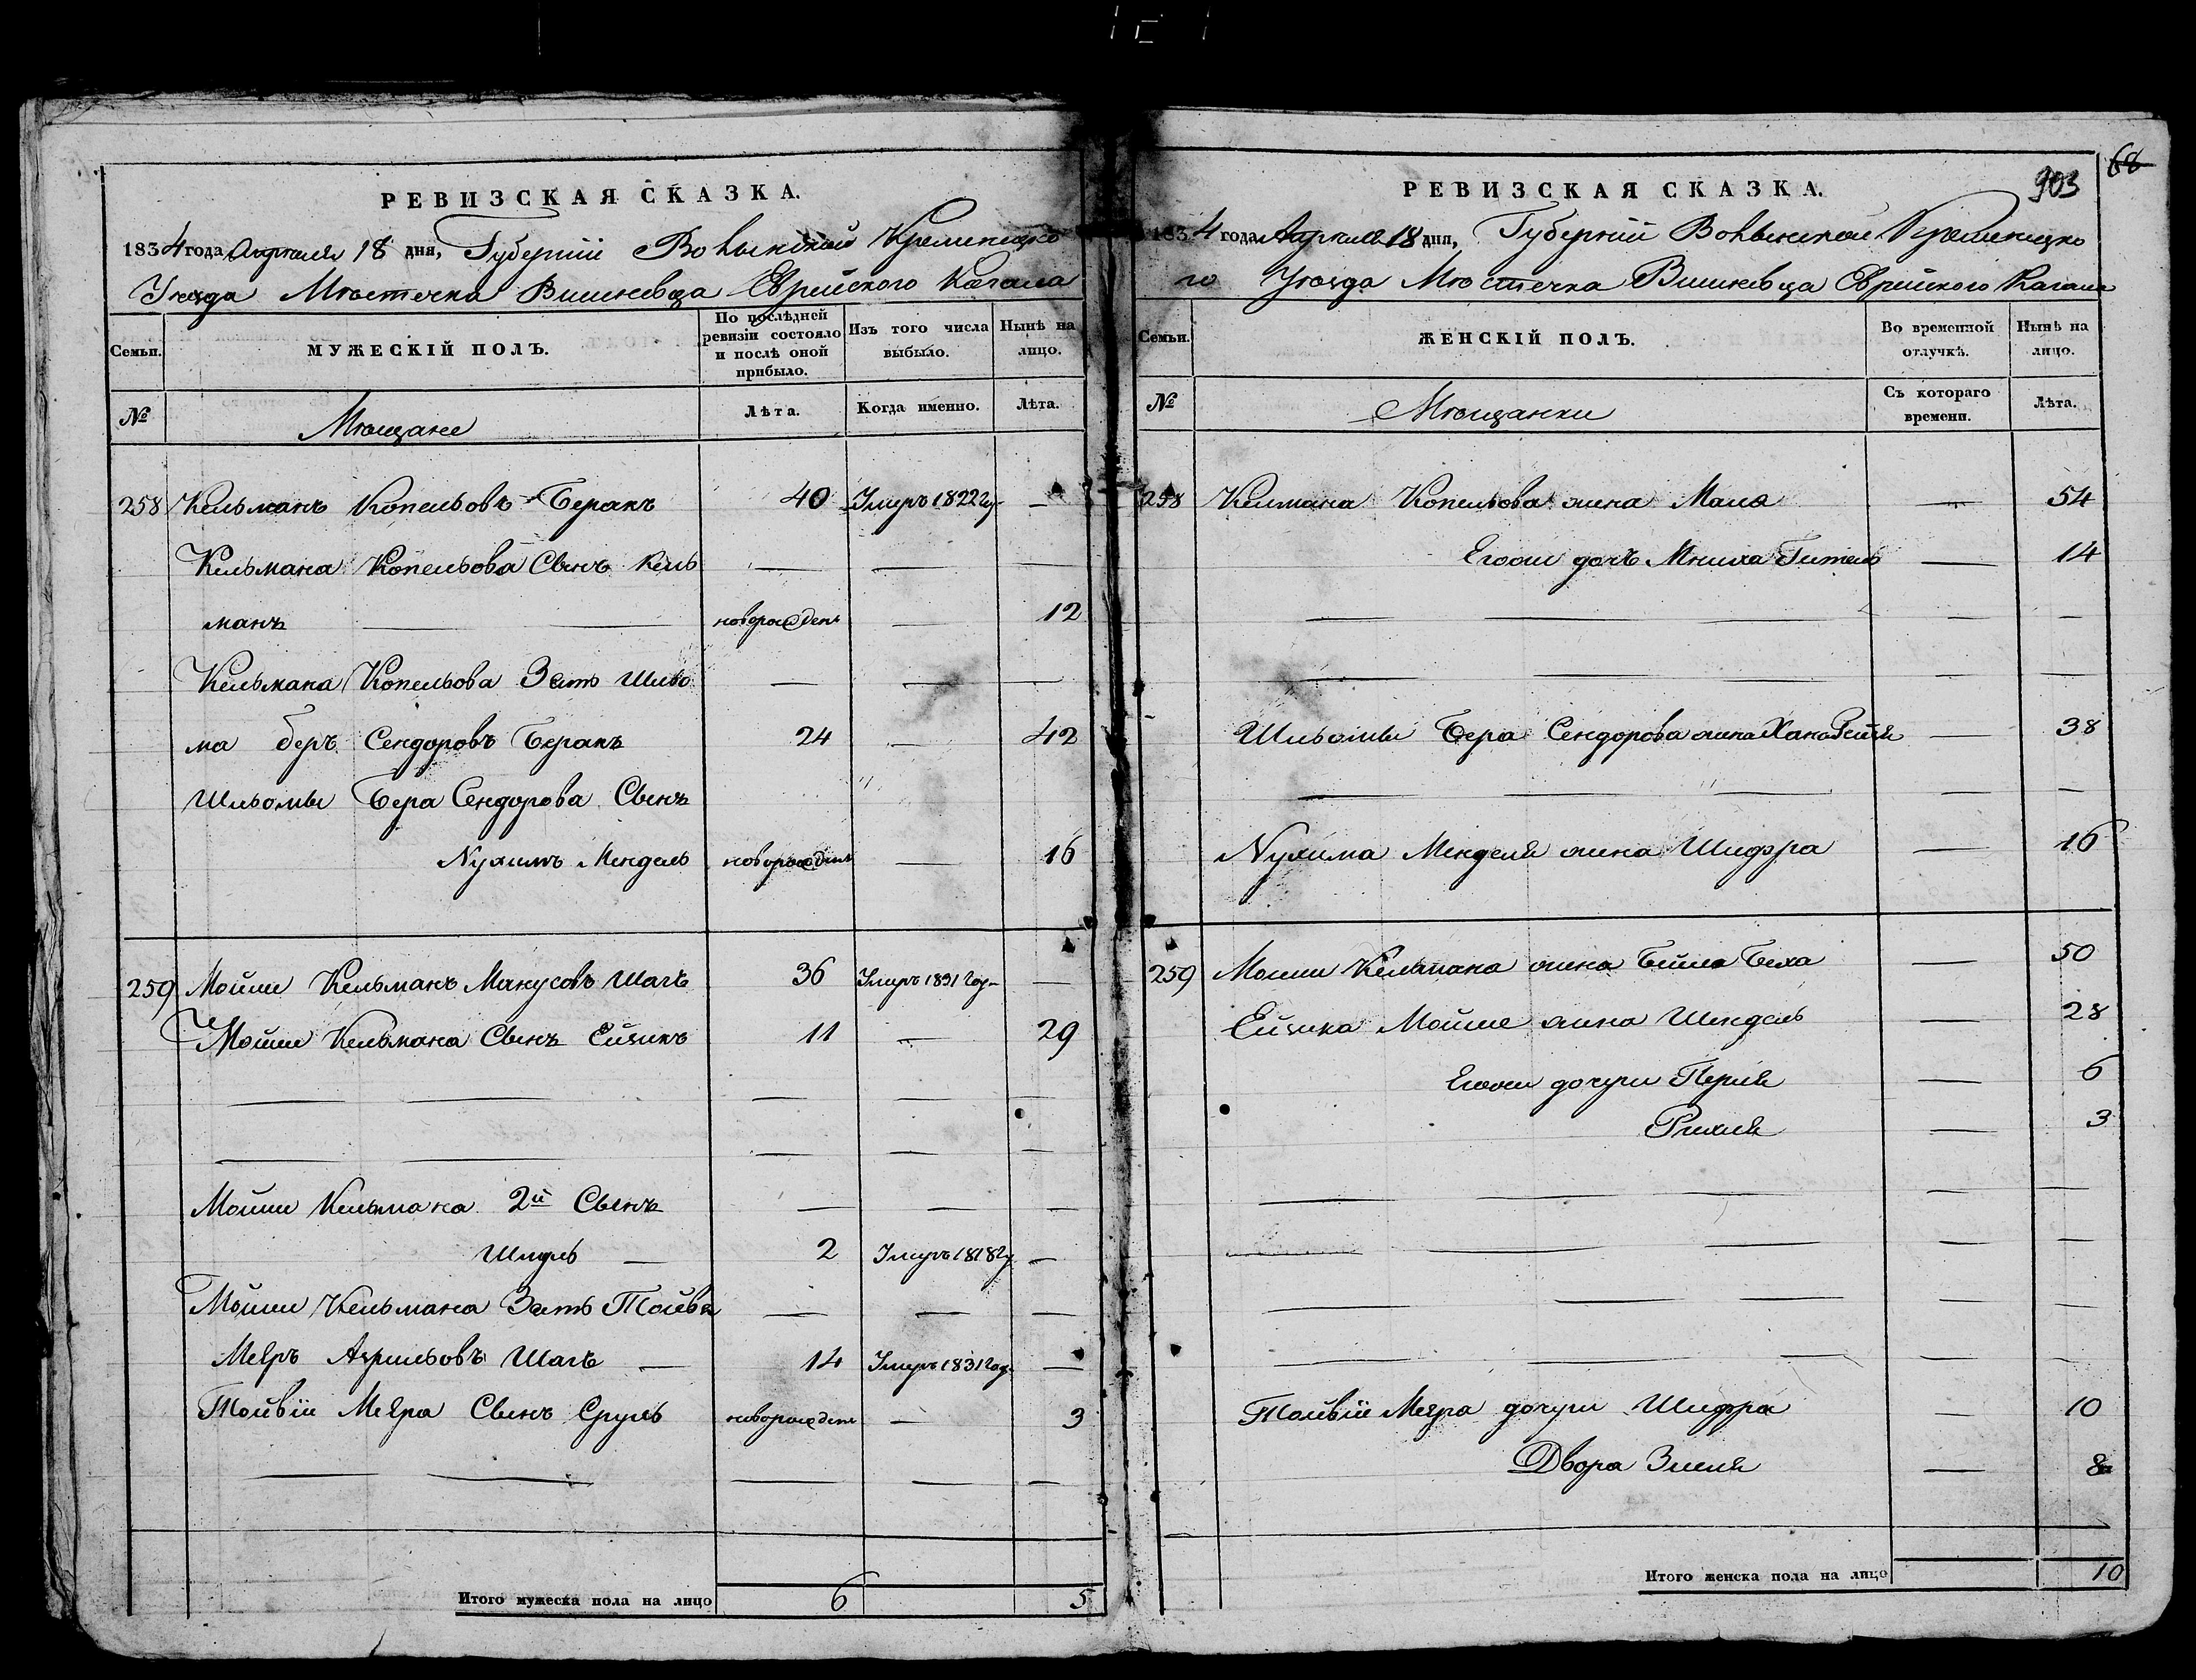 РЕВИЗСКАЯ СКАЗКА.
1834 года Апреля 18 дня, Губернии Волынской Кременецко
Уезда Местечка Вишневца Еврейского Кагала
Семьи. МУЖЕСКІЙ ПОЛЪ. По послѣдней ревизіи состояло и послѣ оной прибыло. Изъ того числа выбыло. Нынѣ на лицо.
№ Мещане Лѣта. Когда именно. Лѣта.
258 Кельманъ Копельовъ Беракъ 40 Умеръ 1822 го —
Кельмана Копельова Сынъ Кель — — —
манъ — — новорожден — 12
Кельмана Копельова Зять Шльо — — —
ма Беръ Сендоровъ Беракъ 24 — 42
Шльомы Бера Сендорова Сынъ
Нухимъ Мендель новорожден — 16
259 Мойше Кельманъ Манусовъ Шагъ 36 Умеръ 1831 год —
Мойше Кельмана Сынъ Ейзикъ 11 — 29
— — — — —
— — — — —
Мойше Кельмана 2й Сынъ — — —
Шмуль — 2 Умеръ 1818 го —
Мойше Кельмана Зять Тойвя — — —
Меръ Азрильовъ Шагъ — 14 Умеръ 1831 год —
Тойвіи Меера Сынъ Сруль новорожден — 3
— — — — —
Итого мужеска пола на лицо 6 5
903 68
РЕВИЗСКАЯ СКАЗКА.
1834 года Апреля 18 дня, Губерніи Волынской Кременецко
го Уезда Местечка Вишневца Еврейского Кагала
Семьи. ЖЕНСКІЙ ПОЛЪ. Во временной отлучкѣ. Нынѣ на лицо.
№ Мещанки Съ котораго времени. Лѣта.
258 Келмана Копельова жена Мала — 54
Егожъ дочь Мниха Гитель — 14
— — — — —
— — — — —
Шльомы Бера Сендорова жена Хана Рейзя — 38
— — — — —
Нухима Менделя жена Шифра — 16
259 Мошки Кельмана жена Бейла Беха — 50
Ейзика Мойше жена Шендель — 28
Егоже дочери Перля — 6
Рихля — 3
— — — — —
— — — — —
— — — — —
— — — — —
Тойвіи Меера дочери Шифра — 10
Двора Зисля — 8
Итого женска пола на лицо 10